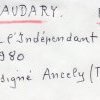 AUDARY.
L'Indépendant
980
signé Ancely (T